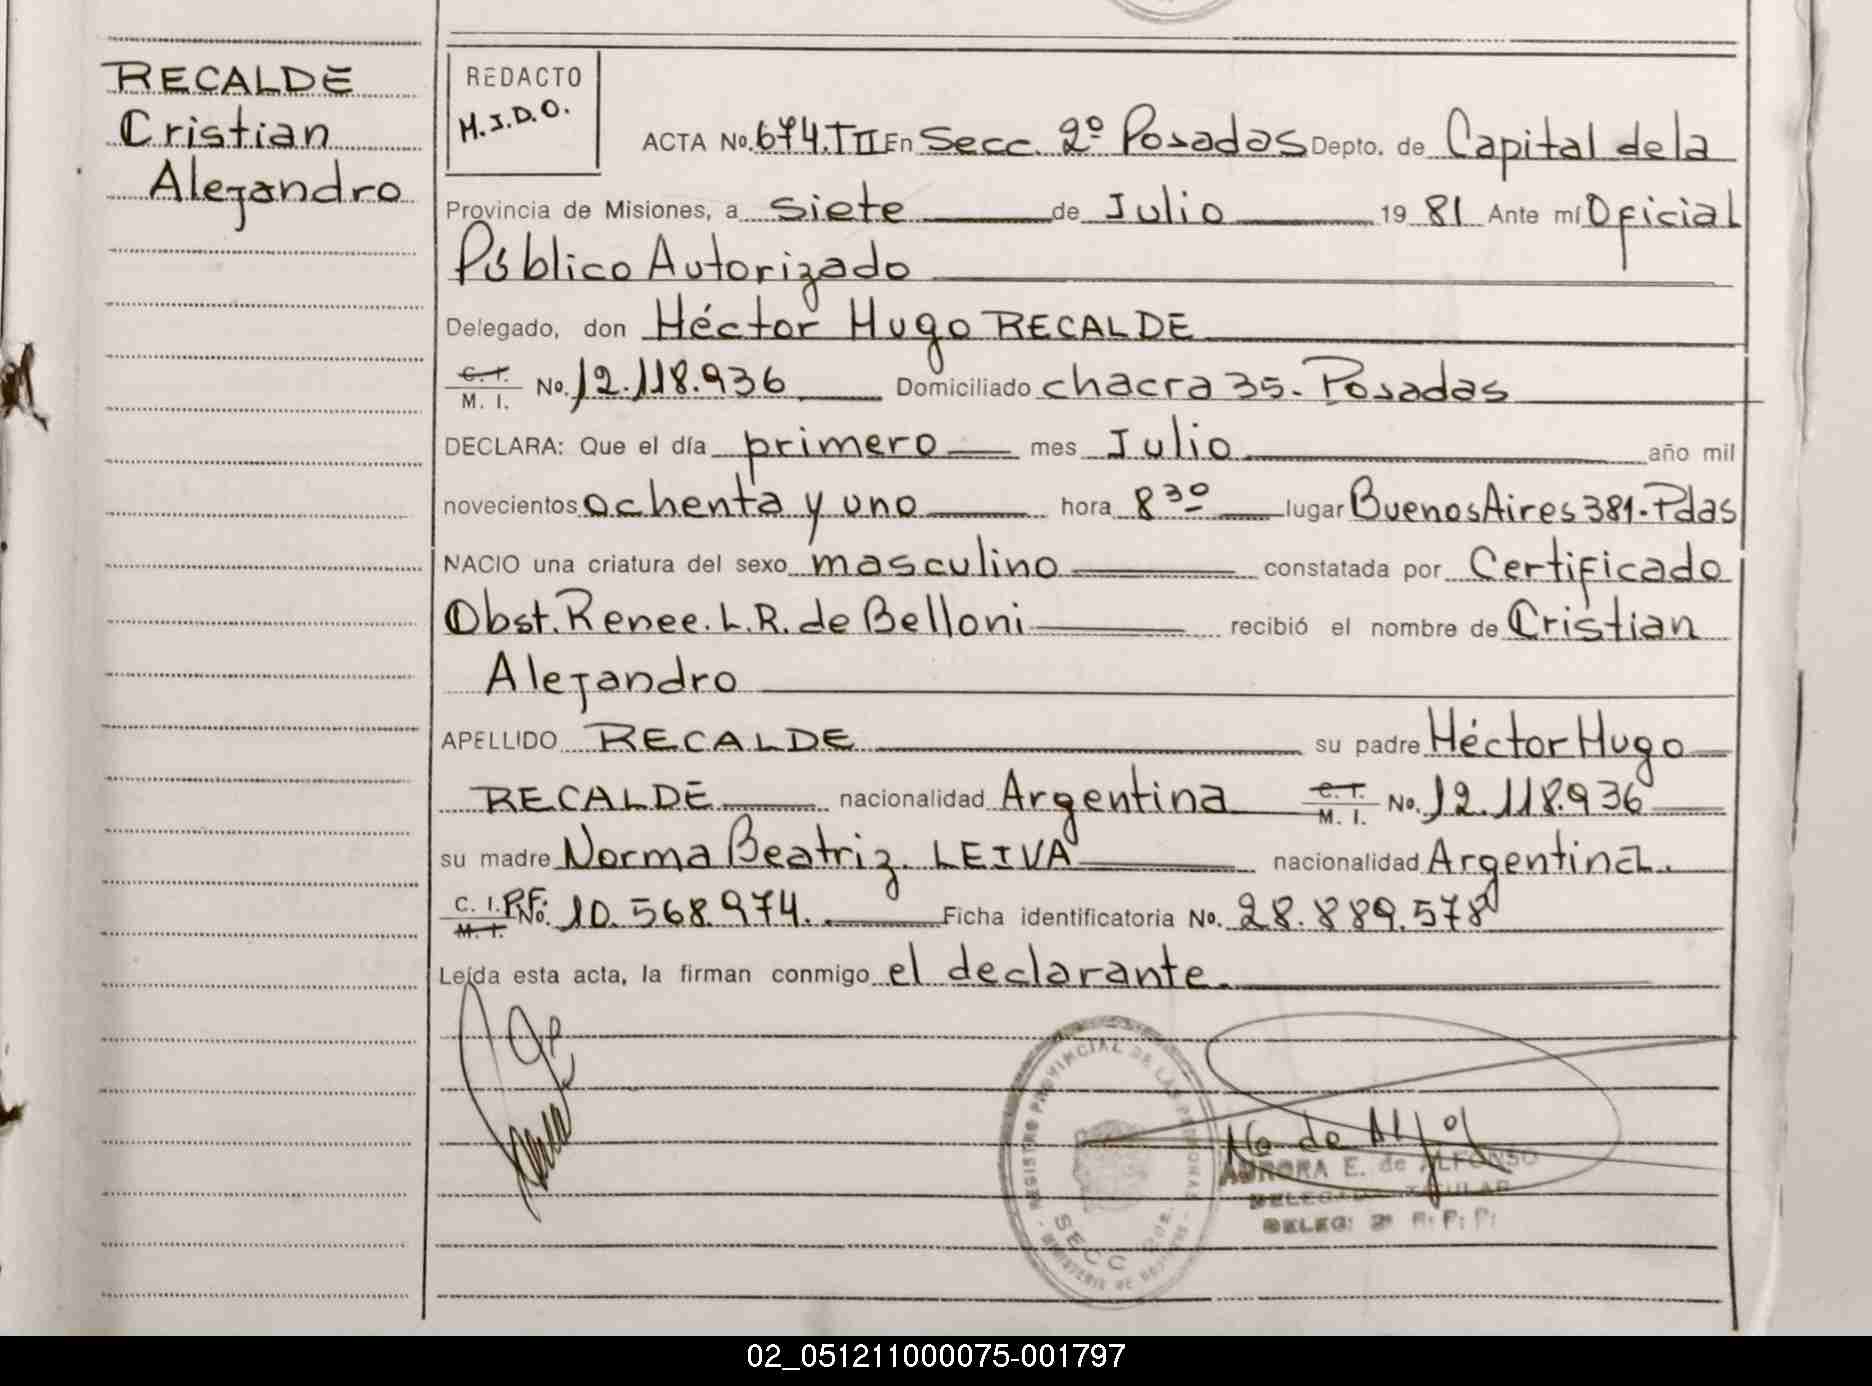 RECALDE
Cristian
Alejandro
REDACTO
H.J.D.O.
ACTA No. 674.TII En Secc. 2º Posadas Depto. de Capital dela
Provincia de Misiones, a siete de Julio 19 81 Ante mí Oficial
Público Autorizado
Delegado, don Héctor Hugo RECALDE
C. I. M. I. No. 12.118.936 Domiciliado chacra 35. Posadas
DECLARA: Que el día primero mes Julio año mil
novecientos ochenta y uno hora 8 30 lugar Buenos Aires 381. Pdas
NACIO una criatura del sexo masculino constatada por Certificado
Obst. Renee. L.R. de Belloni recibió el nombre de Cristian
Alejandro
APELLIDO RECALDE su padre Héctor Hugo
RECALDE nacionalidad Argentina C. I. M. I. No. 12.118.936
su madre Norma Beatriz. LEIVA nacionalidad Argentina.
C. I. M. I. P.F. No. 10.568.974. Ficha identificatoria No. 28.889.578
Leída esta acta, la firman conmigo el declarante.
REGISTRO PROVINCIAL DE LAS PERSONAS
SECC
AURORA E. de ALFONSO
DELEGADA TITULAR
DELEG: 2ª R: P: P:
02_051211000075-001797